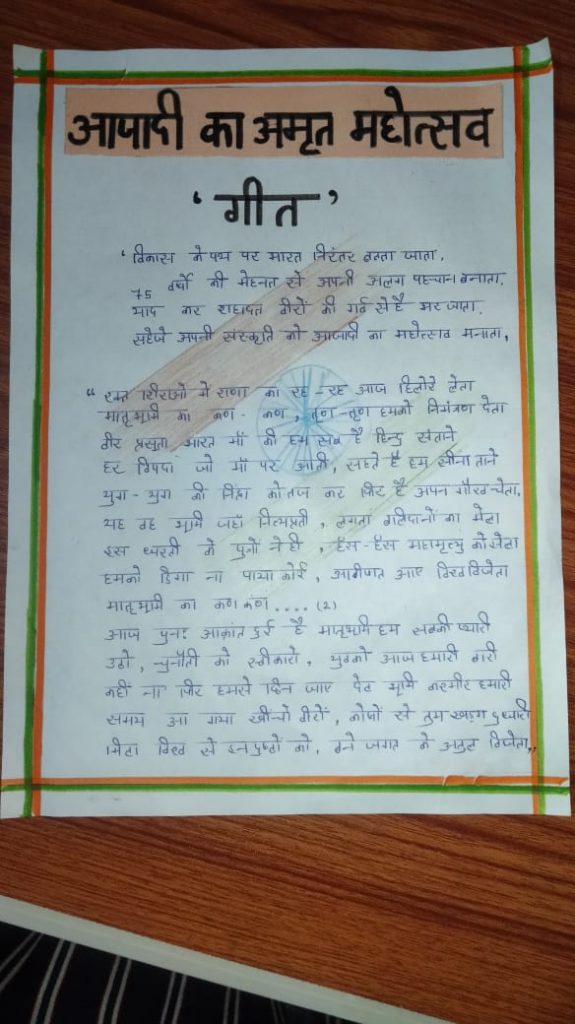 आजादी का अमृत महोत्सव
‘गीत’
‘विकास के पथ पर भारत निरंतर बढता जाता,
75 वर्षों की मेहनत से अपनी अलग पहचान बनाता,
याद कर शहादत वीरों की गर्व से है भर जाता,
सहेजे अपनी संस्कृति को आजादी का महोत्सव मनाता,
“रक्त में राणा का रह-रह आज हिलोरे लेता
मातृभूमि का कण-कण, तृण-तृण हमको निमंत्रण देता
वीर प्रसुता भारत माँ की हम सब है हिन्दु संताने
हर विपदा जो माँ पर आती, सहते है हम सीना ताने
युग-युग की निद्रा को तज कर फिर है अपन गौरव चेता,
यह वह भूमि जहाँ नित्यप्रती, लगता बलिदानों का मेला
इस धरती के पुत्रों ने ही, हँस-हँस महामृत्यु को झेला
हमको डिगा ना पाया कोई, अगणित आए विश्व विजेता
मातृभूमि का कण कण.... (2)
आज पुनः आक्रांत हुई है मातृभूमि हम सबकी प्यारी
उठो, चुनौती को स्वीकारो, युवको आज हमारी बारी
कहीं ना फिर हमसे छिन जाए देव भूमि कश्मीर हमारी
समय आ गया खींचो वीरों, कोषों से तुम खड्ग दुधारी
मिटा विश्व से इन दुष्टों को, बने जगत के अतुल विजेता,,